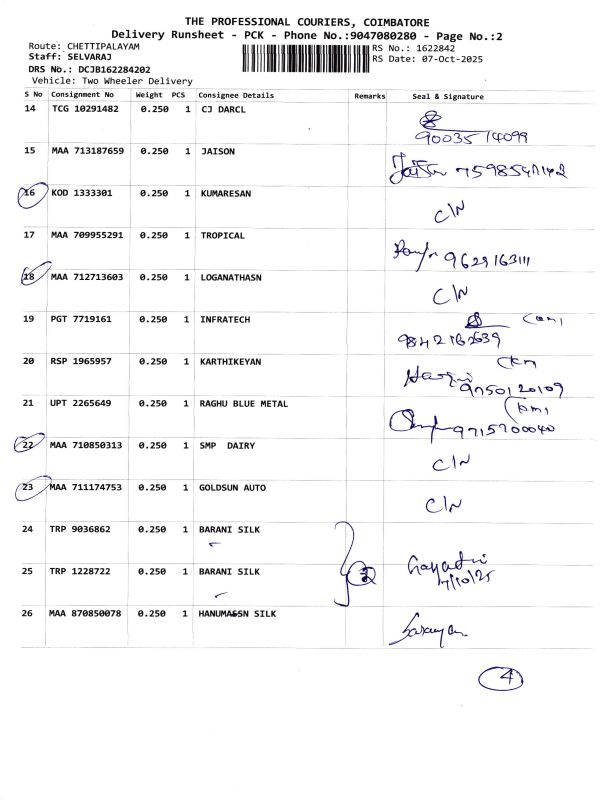 THE PROFESSIONAL COURIERS, COIMBATORE
Delivery Runsheet - PCK - Phone No.:9047080280 - Page No.:2
Route: CHETTIPALAYAM RS No.: 1622842
Staff: SELVARAJ RS Date: 07-Oct-2025
DRS No.: DCJB162284202
Vehicle: Two Wheeler Delivery
S No Consignment No Weight PCS Consignee Details Remarks Seal & Signature
14 TCG 10291482 0.250 1 CJ DARCL
90035 14099
15 MAA 713187659 0.250 1 JAISON
16 KOD 1333301 0.250 1 KUMARESAN
C/N
17 MAA 709955291 0.250 1 TROPICAL
9629163111
18 MAA 712713603 0.250 1 LOGANATHASN
C/N
19 PGT 7719161 0.250 1 INFRATECH
9842162639
20 RSP 1965957 0.250 1 KARTHIKEYAN
9750120109
21 UPT 2265649 0.250 1 RAGHU BLUE METAL
9715700040
22 MAA 710850313 0.250 1 SMP DAIRY
C/N
23 MAA 711174753 0.250 1 GOLDSUN AUTO
C/N
24 TRP 9036862 0.250 1 BARANI SILK
Gayathri
25 TRP 1228722 0.250 1 BARANI SILK
7/10/25
26 MAA 870850078 0.250 1 HANUMASSN SILK
4